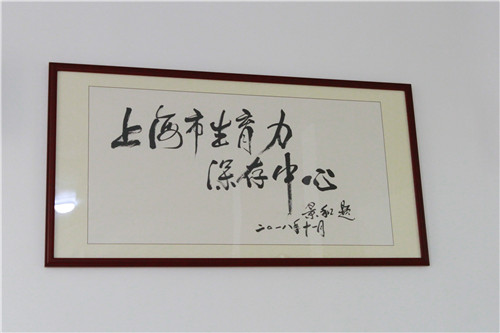 上海市生育力
保存中心
景和题
二〇一八年十一月